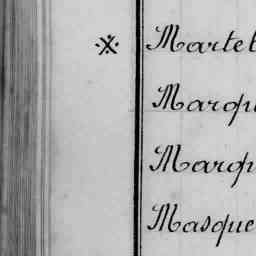 ※ Martel
Marqu
Marqu
Masque